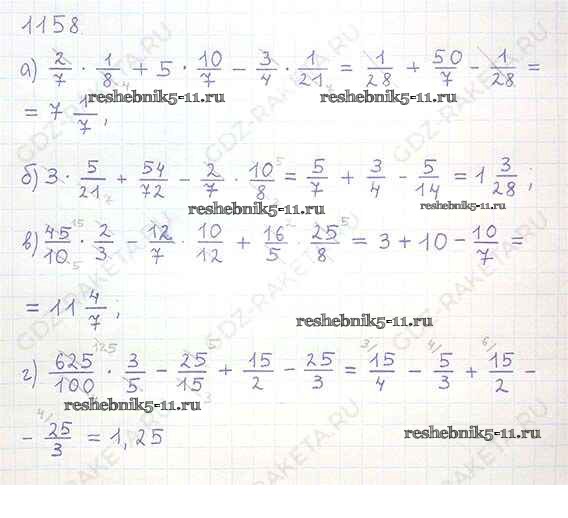 1158.
а) 2/7 · 1/8 4 + 5 · 10/7 − 3/4 · 1/21 7 = 1/28 + 50/7 − 1/28 =
reshebnik5-11.ru reshebnik5-11.ru
= 7 1/7;
б) 3 · 5/21 7 + 54/72 − 2/7 · 10 5/8 = 5/7 + 3/4 − 5/14 = 1 3/28;
reshebnik5-11.ru reshebnik5-11.ru
в) 45 15/10 5 · 2/3 − 12/7 · 10/12 + 16 2/5 · 25 5/8 = 3 + 10 − 10/7 =
= 11 4/7;
reshebnik5-11.ru
г) 625 125/100 · 3/5 − 25 5/15 3 + 15/2 − 25/3 = 3/ 15/4 − 4/ 5/3 + 6/ 15/2 −
reshebnik5-11.ru
− 4/ 25/3 = 1,25
reshebnik5-11.ru
GDZ-RAKETA.RU